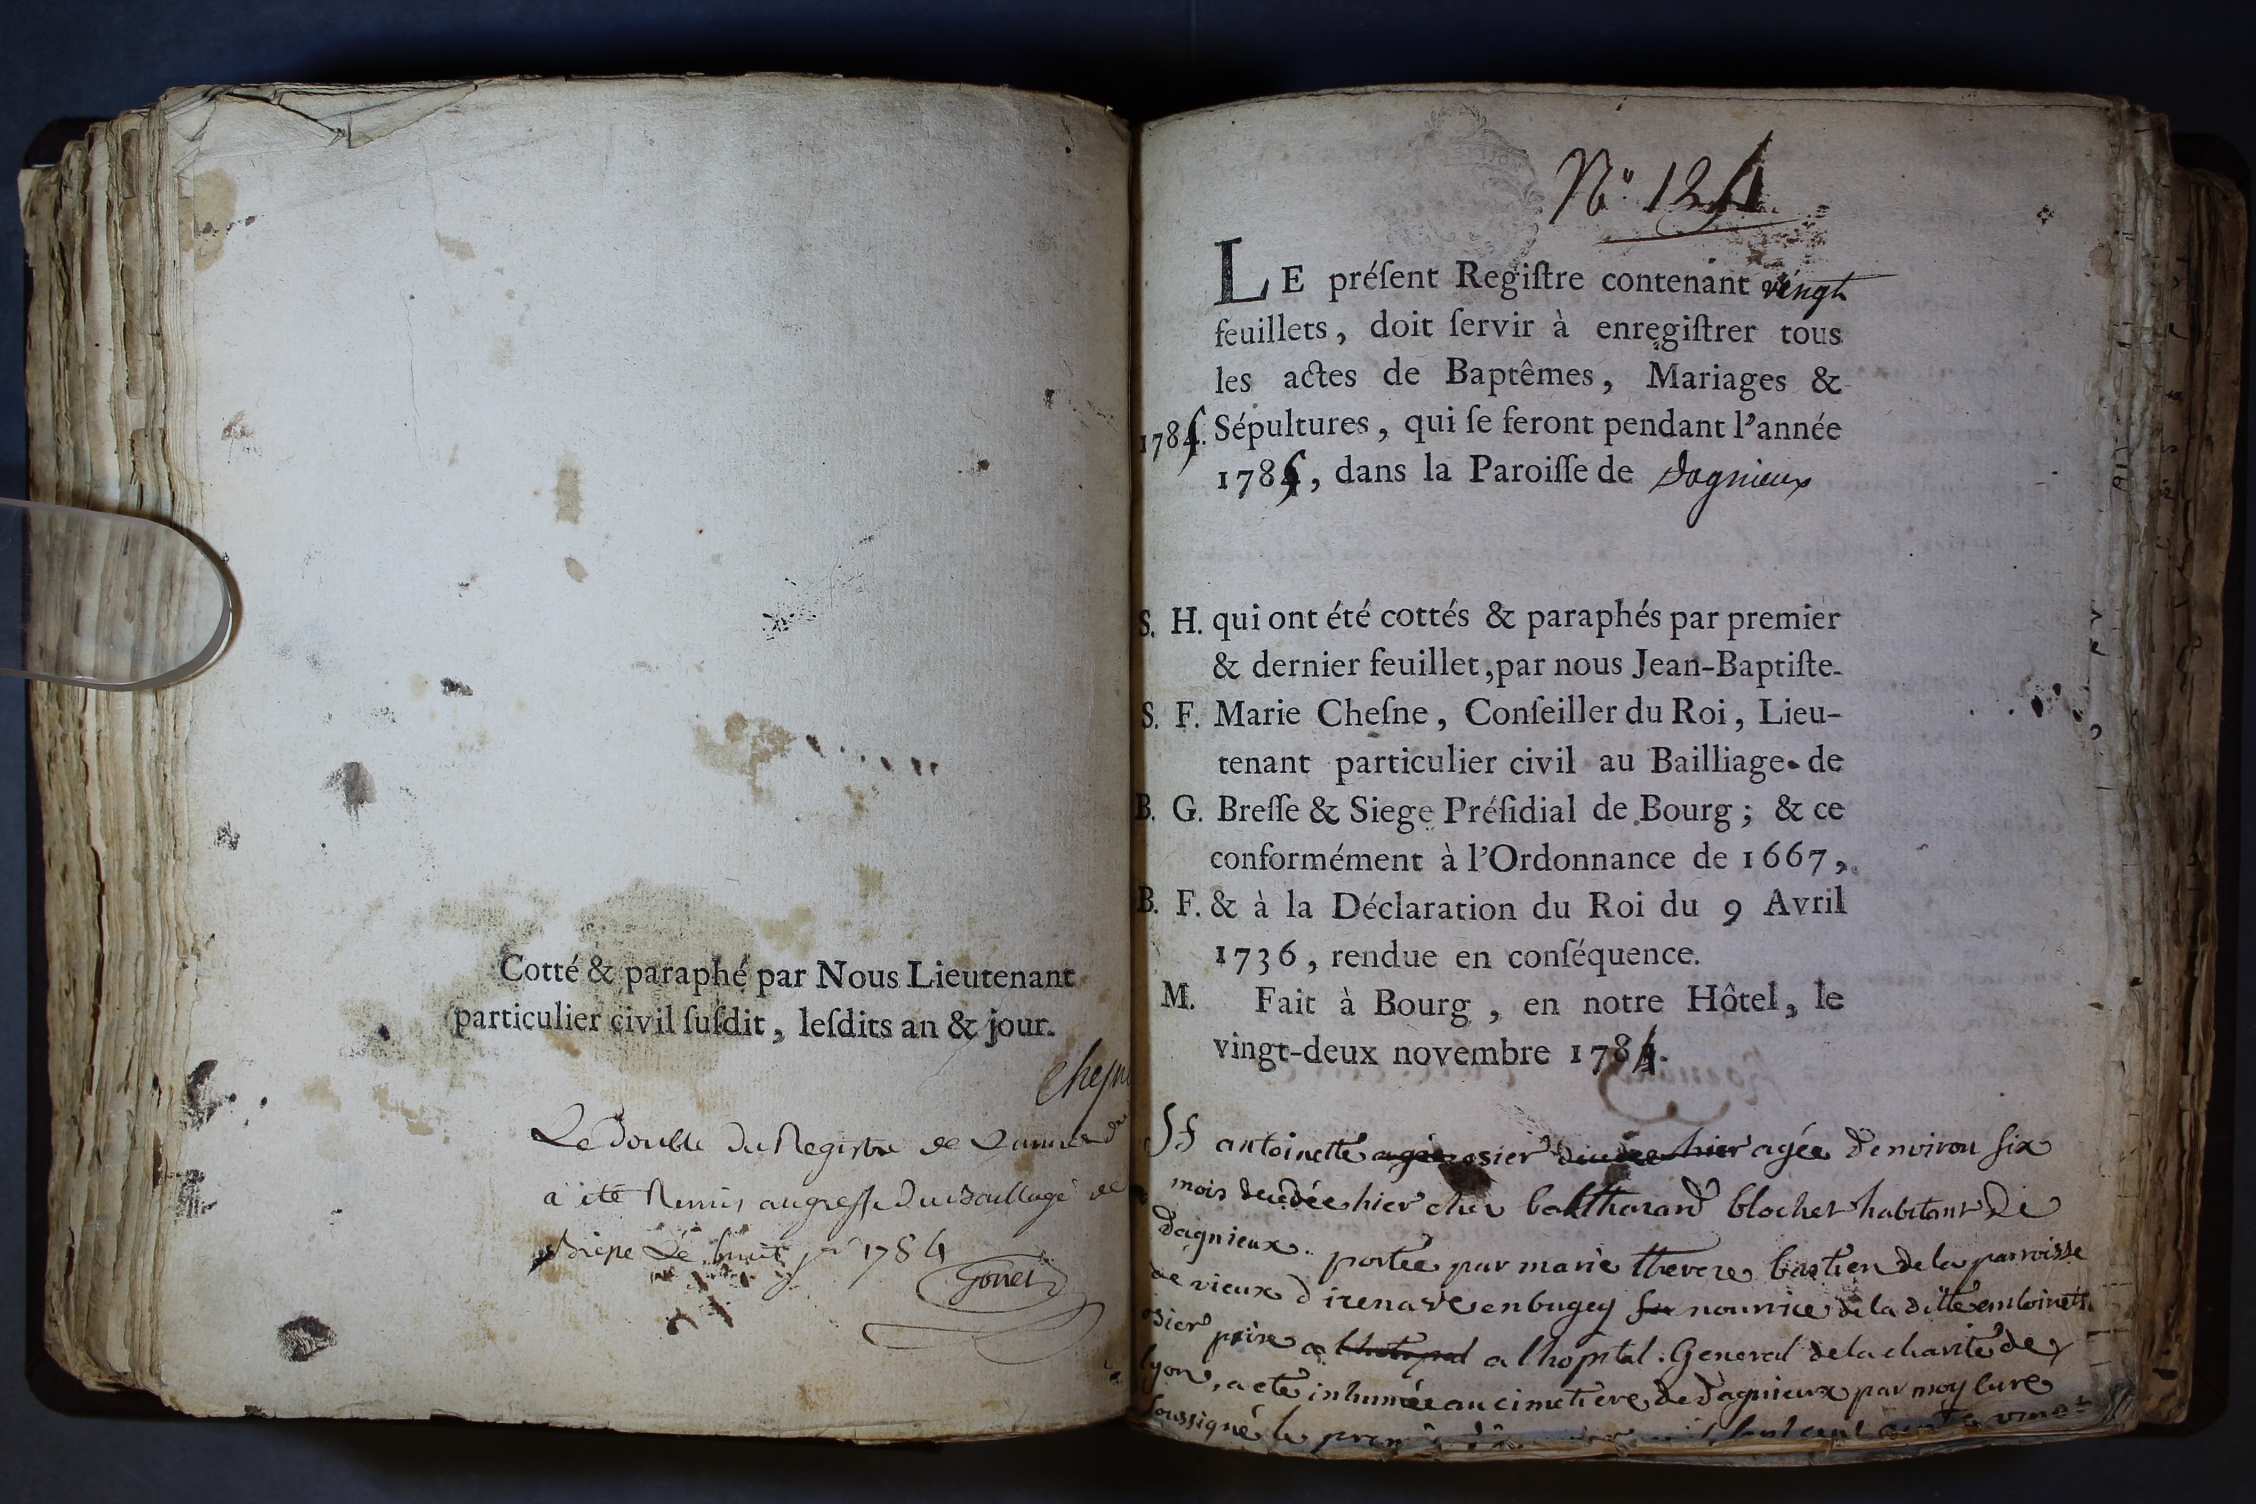 Cotté & paraphé par Nous Lieutenant
particulier civil ſuſdit, leſdits an & jour.
Chesn
Le double du Registre de
a été Remis au greffe du Baillage de
1784
Gonet
N° 124
LE préſent Regiſtre contenant vingt
feuillets, doit ſervir à enregiſtrer tous
les actes de Baptêmes, Mariages &
1784. Sépultures, qui ſe feront pendant l'année
1784, dans la Paroiſſe de Dagnieux
S. H. qui ont été cottés & paraphés par premier
& dernier feuillet, par nous Jean-Baptiſte-
S. F. Marie Cheſne, Conſeiller du Roi, Lieu-
tenant particulier civil au Bailliage de
B. G. Breſſe & Siege Préſidial de Bourg; & ce
conformément à l'Ordonnance de 1667,
B. F. & à la Déclaration du Roi du 9 Avril
1736, rendue en conſéquence.
M. Fait à Bourg, en notre Hôtel, le
vingt-deux novembre 178
antoinette osier agée d'environ six
mois decedée hier chez balthazard blochet habitant de
dagnieux portée par marie therese bastien de la parroisse
de vieux d'izenave en bugey nourrice de la ditte antoinette
osier prise a l'hopital General de la charité de
lyon, a eté inhumée au cimetiere de dagnieux par moy curé
soussigné le